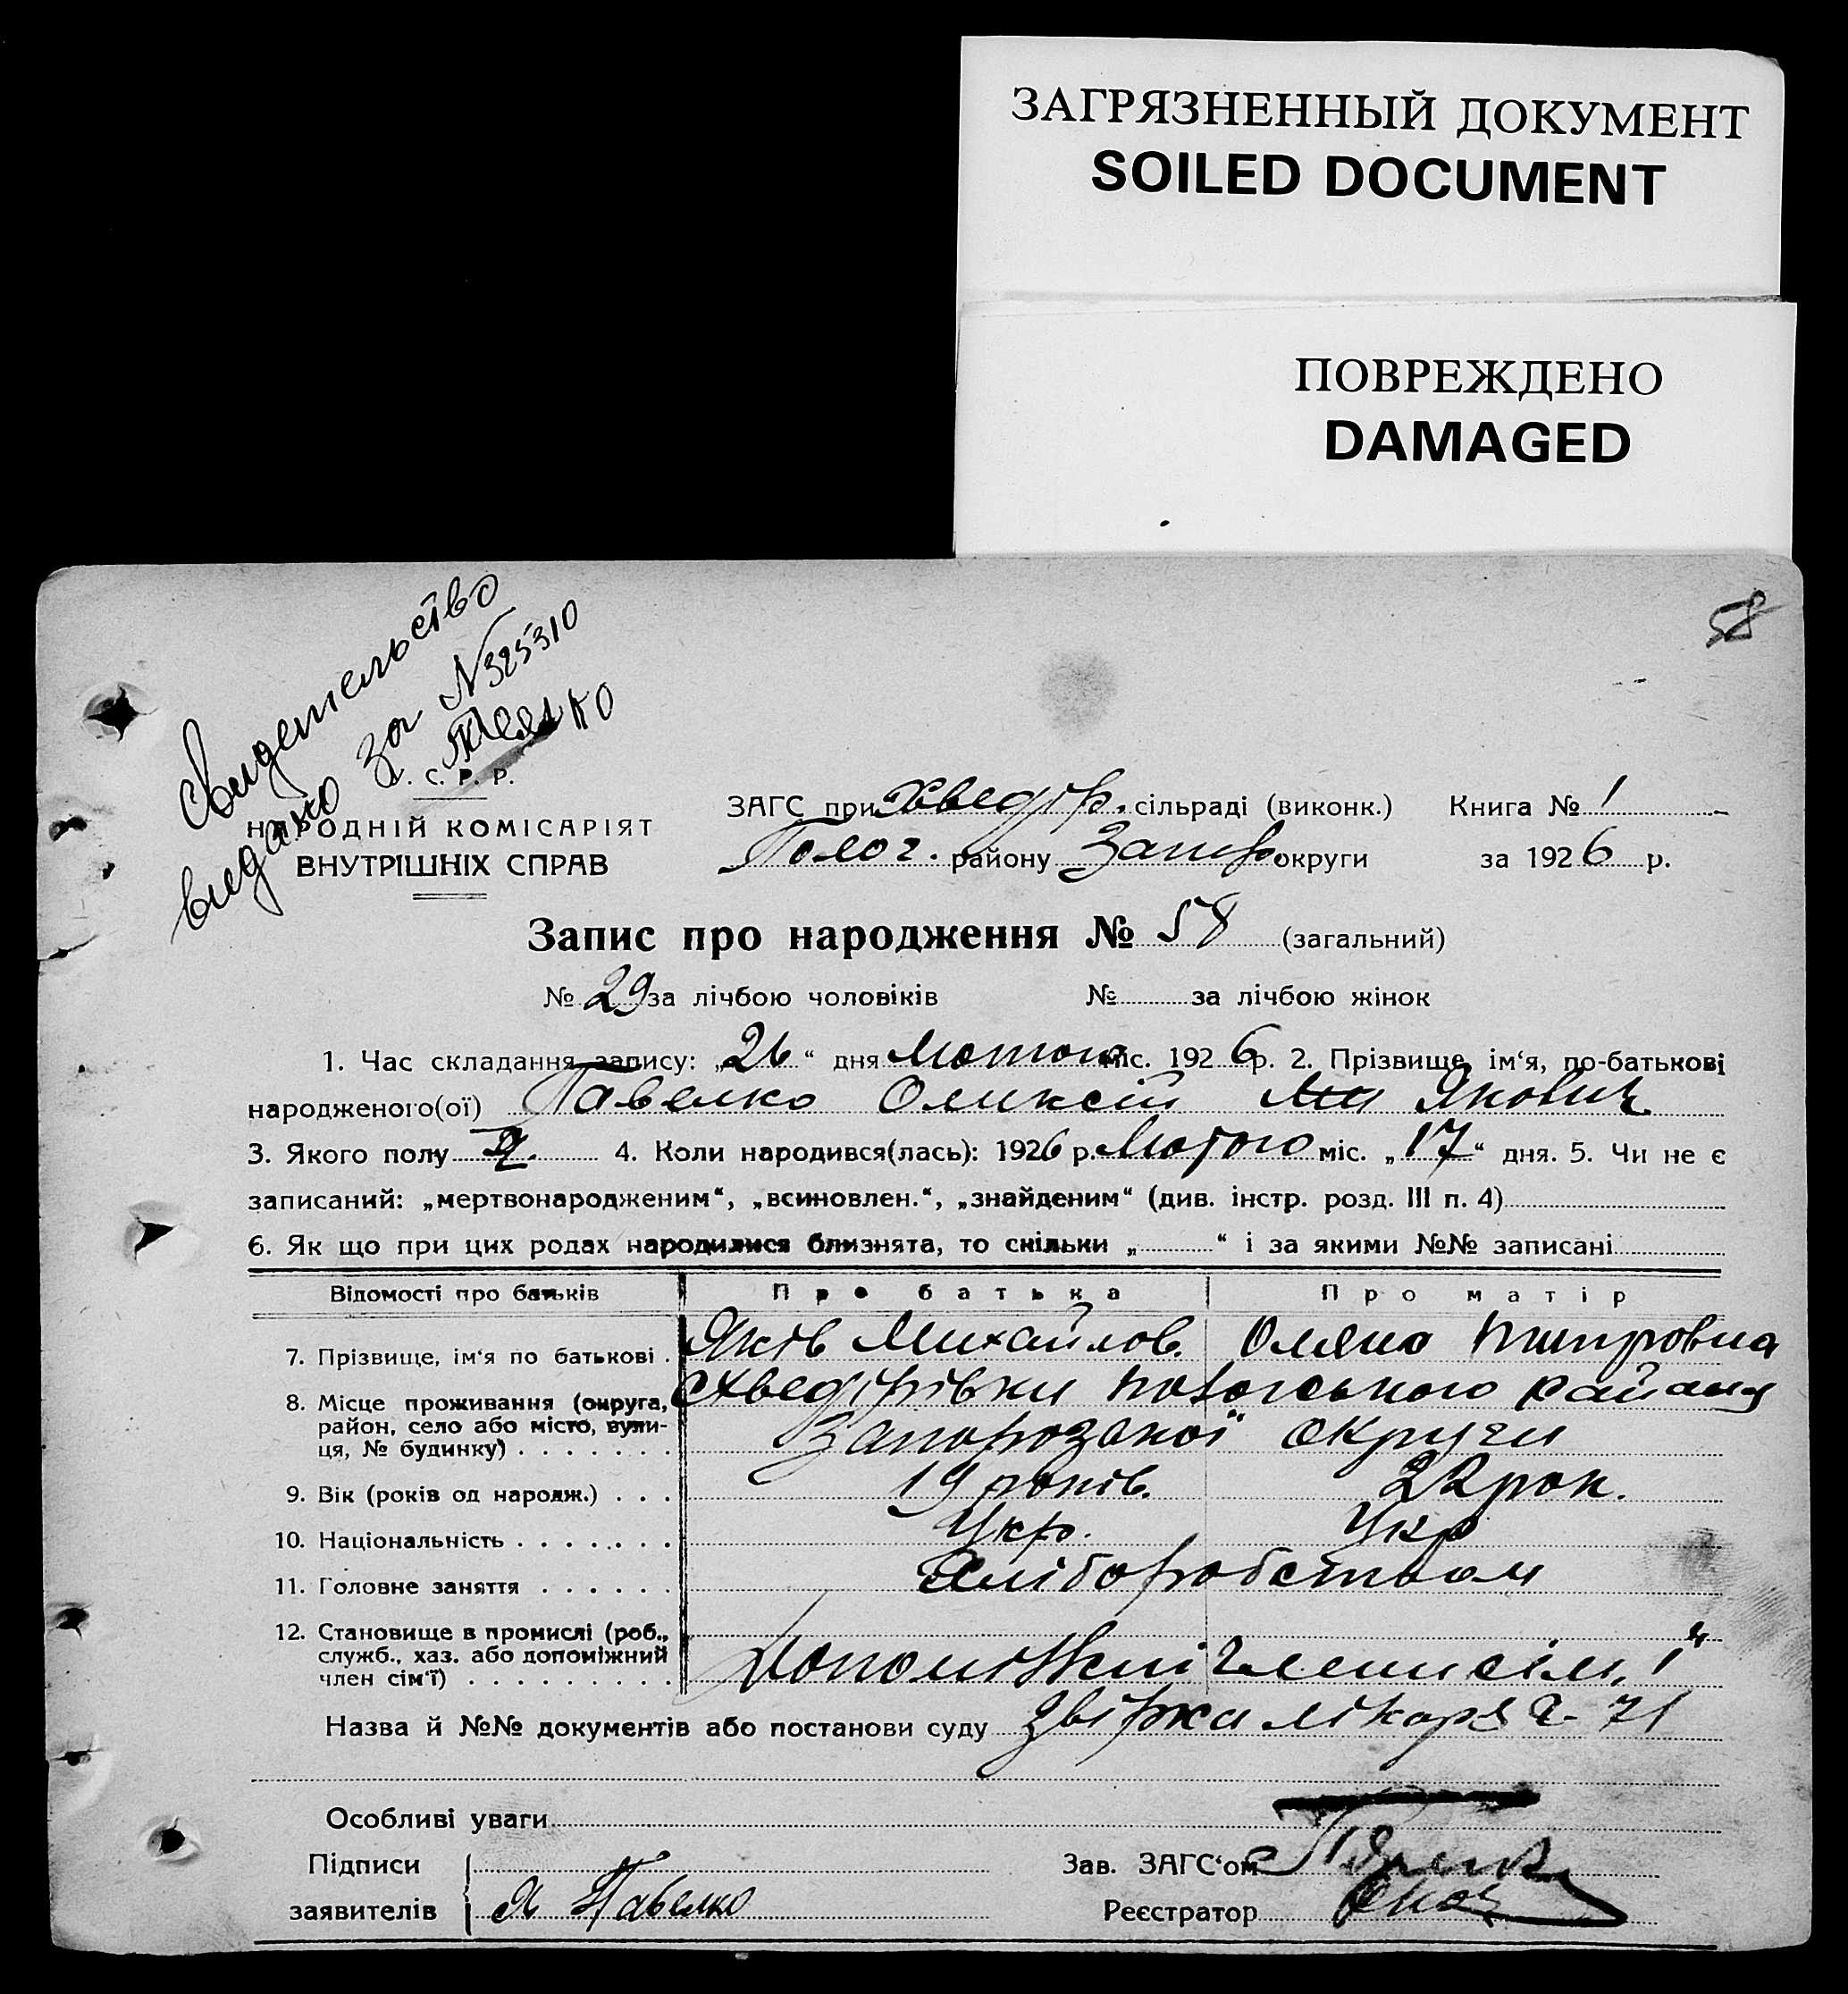 ЗАГРЯЗНЕННЫЙ ДОКУМЕНТ
SOILED DOCUMENT
ПОВРЕЖДЕНО
DAMAGED
58
Свидетельство
видано за N325310
С. Р. Р.
НАРОДНІЙ КОМІСАРІЯТ
ВНУТРІШНІХ СПРАВ
ЗАГС при Хведір. сільраді (виконк.) Книга № 1
Полог. району Запор округи за 1926 р.
Запис про народження № 58 (загальний)
№ 29 за лічбою чоловіків № за лічбою жінок
1. Час складання запису: „26“ дня Лютого міс. 1926 р. 2. Прізвище, ім‘я, по-батькові
народженого(ої) Павелко Олексій Якович
3. Якого полу ч. 4. Коли народився(лась): 1926 р. Лютого міс. „17“ дня. 5. Чи не є
записаний: „мертвонародженим“, „всиновлен.“, „знайденим“ (див. інстр. розд. III п. 4)
6. Як що при цих родах народилися близнята, то скільки „ “ і за якими №№ записані
Відомості про батьків Про батька Про матір
7. Прізвище, ім‘я по батькові . Яків Михайлов. Оляна
8. Місце проживання (округа, район, село або місто, вули-ця, № будинку) . . . . . . . Хведірівки Пологського района
Запорозької округи
9. Вік (років од народж.) . . . 19 років. 22 рок.
10. Національність . . . . . . . Укр. Укр
11. Головне заняття . . . . . . Хліборобством
12. Становище в промислі (роб.,
служб., хаз. або допоміжний
член сім‘ї) . . . . . . . . . Допоміжні члени сім.
Назва й №№ документів або постанови суду Звірка лікаря ч. 71
Особливі уваги
Підписи
заявителів Я Павелко
Зав. ЗАГС‘ом
Реєстратор